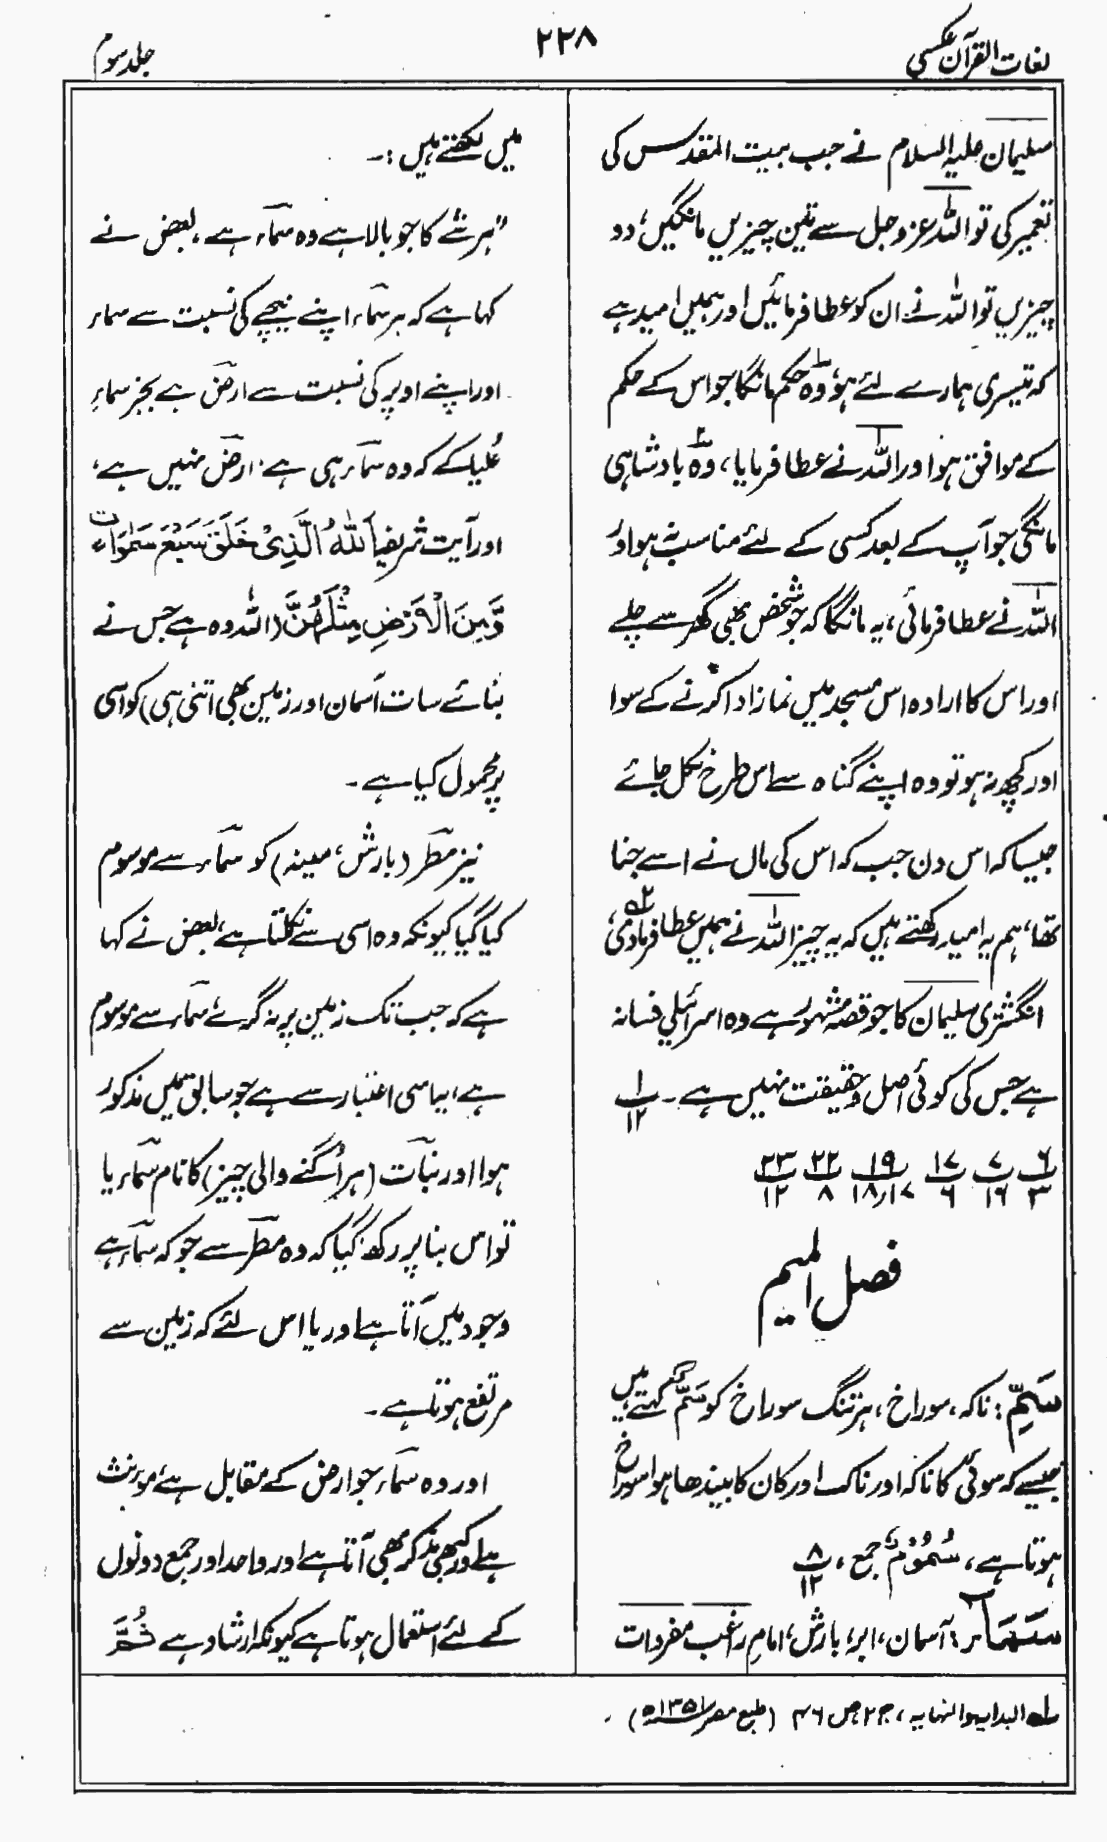 لغات القرآن عکسی
۲۲۸
جلد سوم
سلیمان علیہ السلام نے جب بیت المقدس کی
تعمیر کی تو اللہ عز و جل سے تین چیزیں مانگیں، دو
چیزیں تو اللہ نے ان کو عطا فرمائیں اور ہمیں امید ہے
کہ تیسری ہمارے لئے ہو، وہ حکم مانگا جو اس کے حکم
کے موافق ہو اور اللہ نے عطا فرمایا، وہ بادشاہی
مانگی جو آپ کے بعد کسی کے لئے مناسب نہ ہو اور
اللہ نے عطا فرمائی، یہ مانگا کہ جو شخص بھی گھر سے چلے
اور اس کا ارادہ اس مسجد میں نماز ادا کرنے کے سوا
اور کچھ نہ ہو تو وہ اپنے گناہ سے اس طرح نکل جائے
جیسا کہ اس دن جب کہ اس کی ماں نے اسے جنا
تھا، ہم یہ امید رکھتے ہیں کہ یہ چیز اللہ نے ہمیں عطا فرمادی، لہ
انگشتری سلیمان کا جو قصہ مشہور ہے وہ اسرائیلی فسانہ
ہے جس کی کوئی اصل و حقیقت نہیں ہے۔ ۱/۱۲
۶/۳ ۷/۱۶ ۱۷/۶ ۱۹/۱۷،۱۸ ۲۲/۸ ۲۳/۱۲
فصل المیم
سَمِّ: ناکہ، سوراخ، ہر تنگ سوراخ کو سَمّ کہتے ہیں
جیسے کہ سوئی کا ناکہ اور ناک اور کان کا بیندھا ہوا سوراخ
ہوتا ہے، سُمُوْمٌ جمع، ۸/۱۲
سَمَاۤء: آسمان، ابر، بارش، امام راغب مفردات
میں لکھتے ہیں:۔
"ہر شئے کا جو بالا ہے وہ سماء ہے، بعض نے
کہا ہے کہ ہر سماء اپنے نیچے کی نسبت سے سماء
اور اپنے اوپر کی نسبت سے ارض ہے بجز سماءِ
عُلیا کے کہ وہ سماء ہی ہے، ارض نہیں ہے،
اور آیت شریفہ اَللّٰهُ الَّذِیْ خَلَقَ سَبْعَ سَمٰوَاتٍ
وَّمِنَ الْاَرْضِ مِثْلَهُنَّ (اللہ وہ ہے جس نے
بنائے سات آسمان اور زمین بھی اتنی ہی) کو اسی
پر محمول کیا ہے۔
نیز مطر (بارش، مینہ) کو سماء سے موسوم
کیا گیا کیونکہ وہ اسی سے نکلتا ہے، بعض نے کہا
ہے کہ جب تک زمین پر نہ گرے سماء سے موسوم
ہے، یہ اسی اعتبار سے ہے جو سابق میں مذکور
ہوا اور نبات (ہر اگنے والی چیز) کا نام سماء یا
تو اس بنا پر رکھ گیا کہ وہ مطر سے جو کہ سماء ہے
وجود میں آتا ہے اور یا اس لئے کہ زمین سے
مرتفع ہوتا ہے۔
اور وہ سماء جو ارض کے مقابل ہے، مؤنث
ہے اور کبھی مذکر بھی آتا ہے اور واحد اور جمع دونوں
کے لئے استعمال ہوتا ہے کیونکہ ارشاد ہے ثُمَّ
لہ البدایہ والنہایہ، ج ۲ ص ۲۶ (طبع مصر ۱۳۵۱ھ)۔